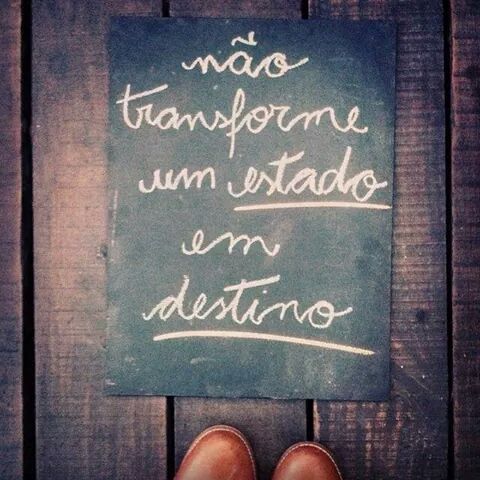 não
transforme
um estado
em
destino